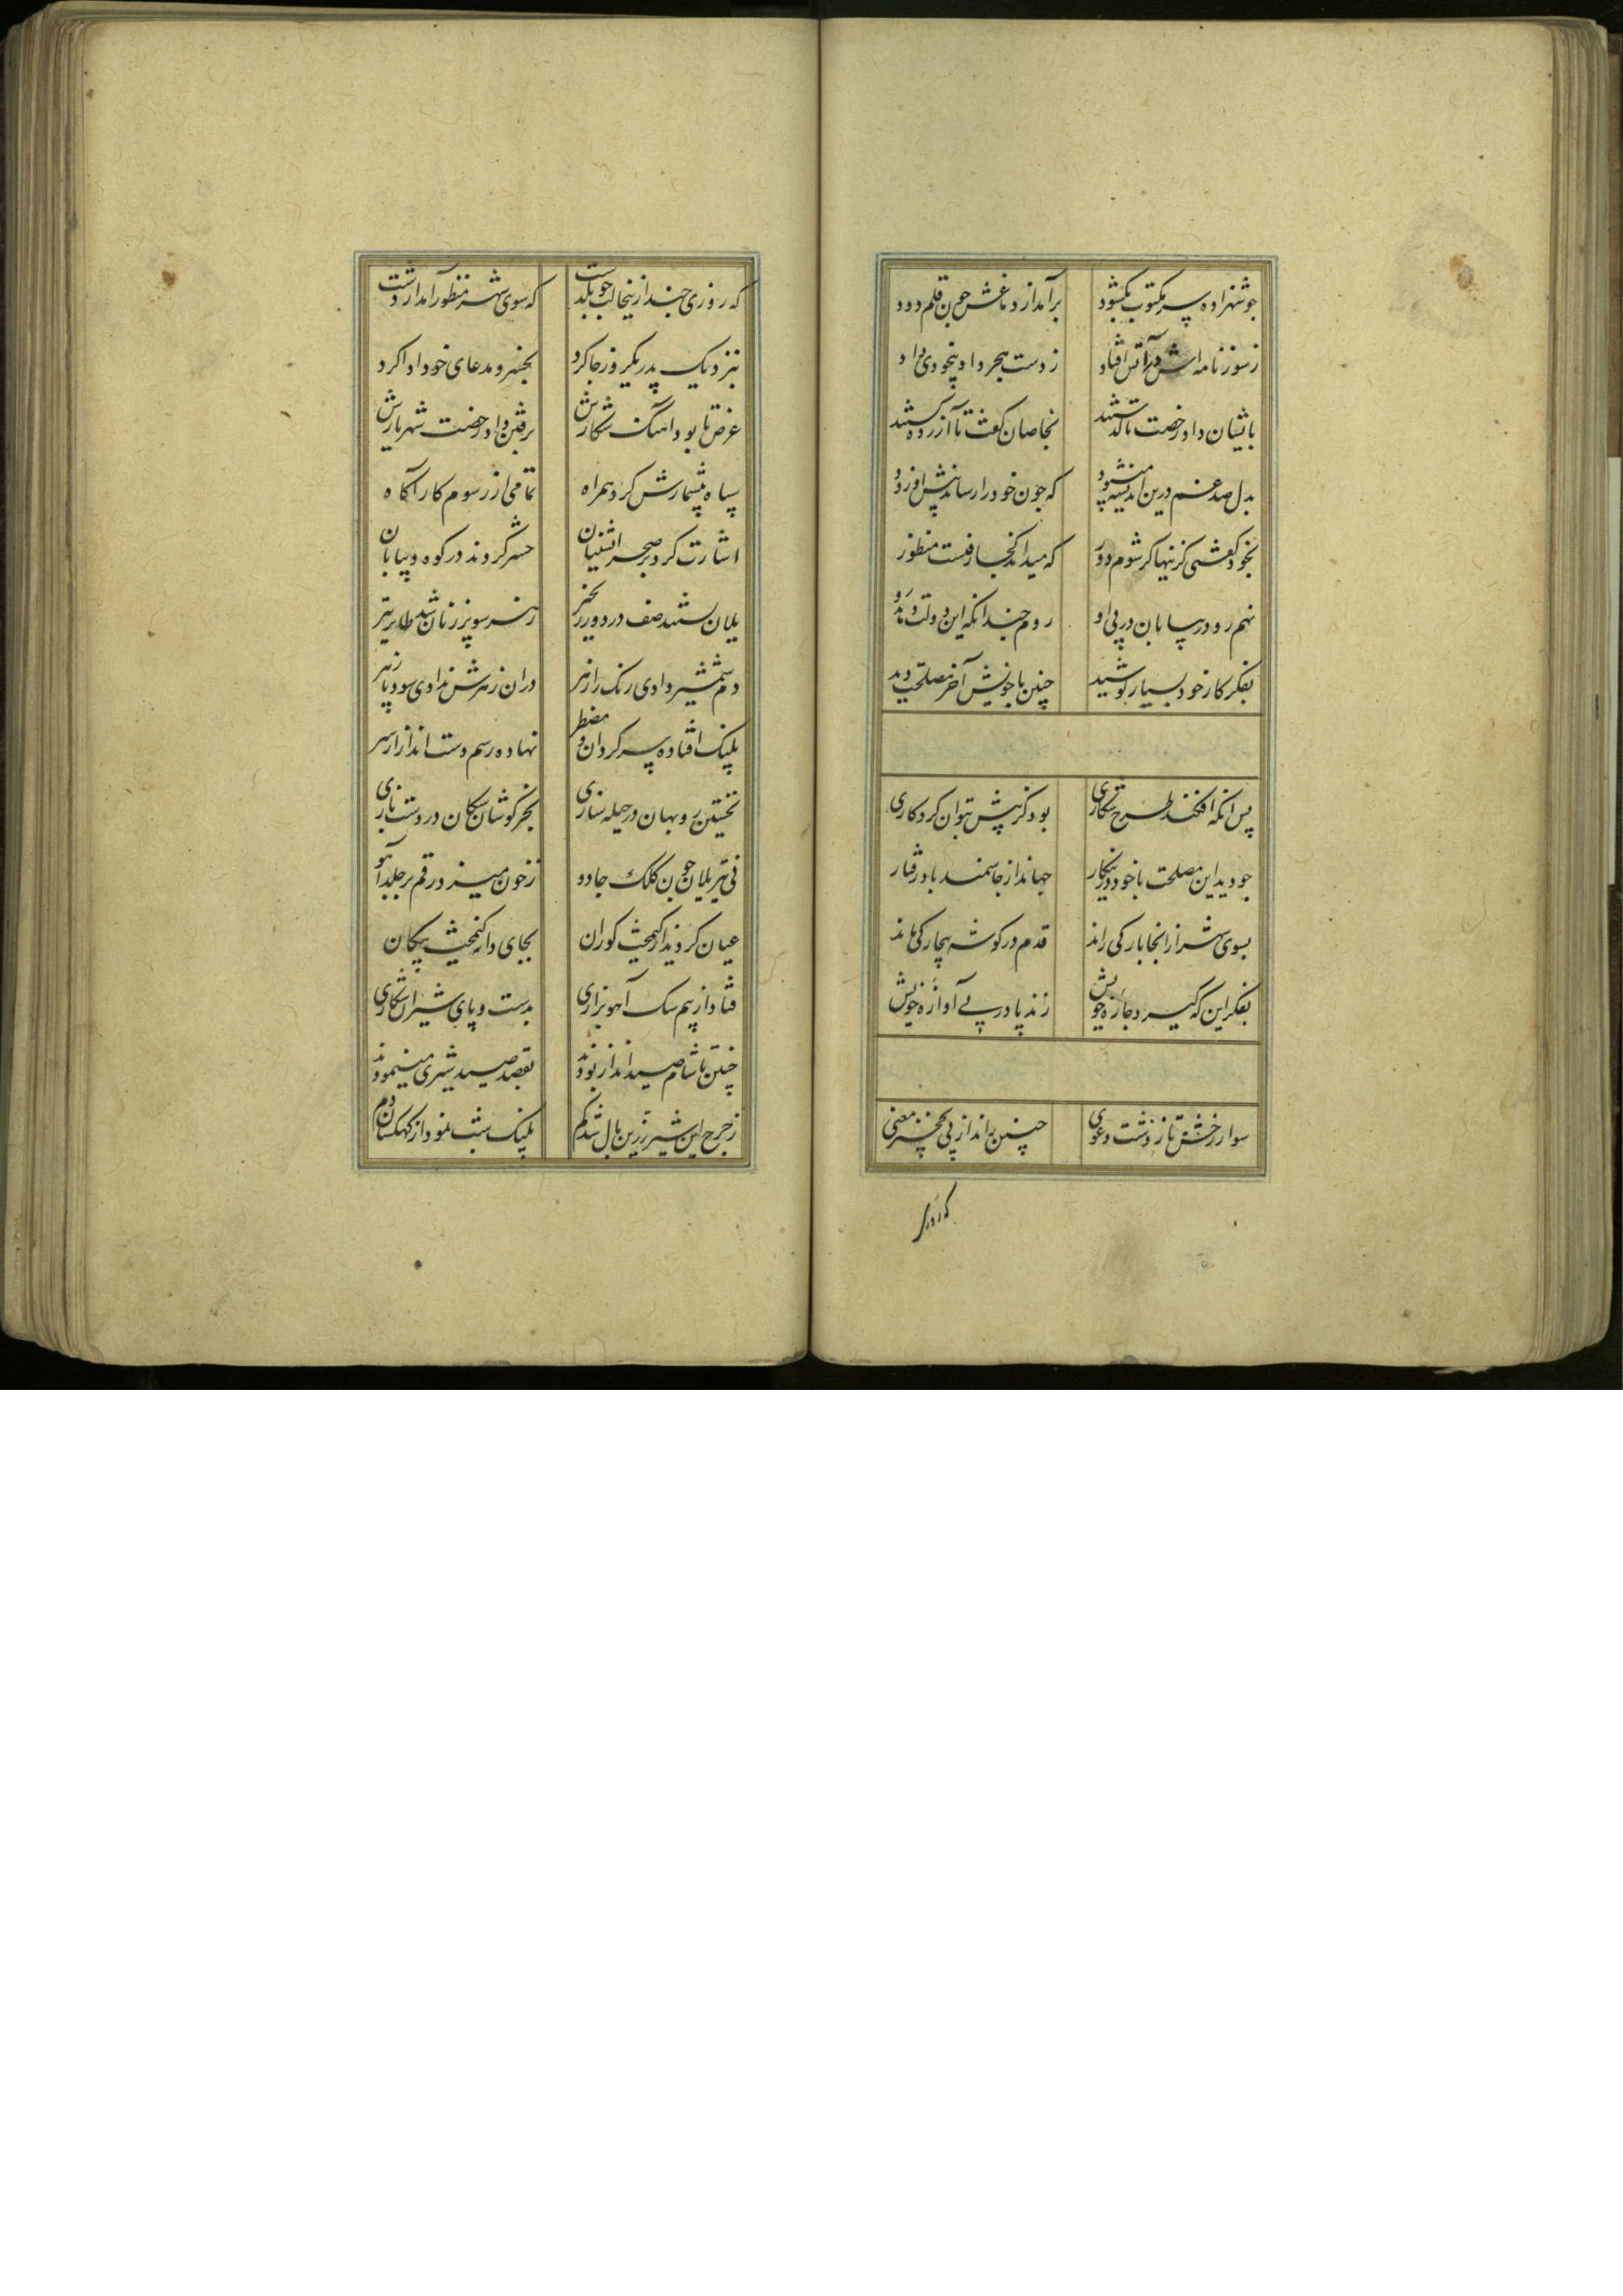 چو شهزاده سر مکتوب بکشود برآمد از دماغش چون قلم دود
ز سوز نامه اش در آتش افتاد ز دست هجر داد بیخودی داد
بایشان داد رخصت تا گذشتند بخاصان گفت تا آزرده گشتند
بدل صد غم درین اندیشه می‌بود که چون خود را رساند پیش او زود
بخود گفتی کزینها گر شوم دور که میداند کجا رفتست منظور
نهم رو در بیابان در پی او روم چندانکه این دولت دهد رو
بفکر کار خود بسیار کوشید چنین با خویش آخر مصلحت دید
پس آنکه افکند طرح شکاری بود کز پیش بتوان کرد کاری
چو دید این مصلحت با خود در این کار جهاند از جا سمند باد رفتار
بسوی شهر از آنجا بارگی راند قدم در گوشه بیچارگی ماند
بفکر این که گیرد چاره خویش زند پا در پی آوازه خویش
سوار رخش تاز دشت دعوی چنین راند از پی نخجیر معنی
که روزی
که روزی چند ازینجا لب چو بربست که سوی شهر منظور آمد از دشت
بنزدیک پدر یک روز جا کرد بخسرو مدعای خود ادا کرد
غرض تا بود آهنگ شکارش برفتن داد رخصت شهریارش
سپاه بیشمارش کرد همراه تمامی از رسوم کار آگاه
اشارت کرد بر صحرانشینان حشر کردند در کوه و بیابان
یلان بستند صف در دور نخجیر ز هر سو پر زنان شد طایر تیر
دم شمشیر دادی رنگ را زهر در آن زهرش ندادی سود پازهر
پلنگ افتاده سرگردان و مضطر نهاده رسم دست انداز از سر
نخستین روبهان در حیله سازی بخرگوشان سگان در دست بازی
نی تیر یلان چون کلک جادو ز خون میزد رقم بر جلد آهو
عیان کردند از کیمخت گوران بجای دانه کیمخت پیکان
فتاد از بیم سگ آهو بزاری بدست و پای شیران شکاری
چنین تا شام صید انداز بودند بقصد صید شیری مینمودند
ز چرخ این شیر زرین یال شد گم پلنگ شب نمود از کهکشان دم